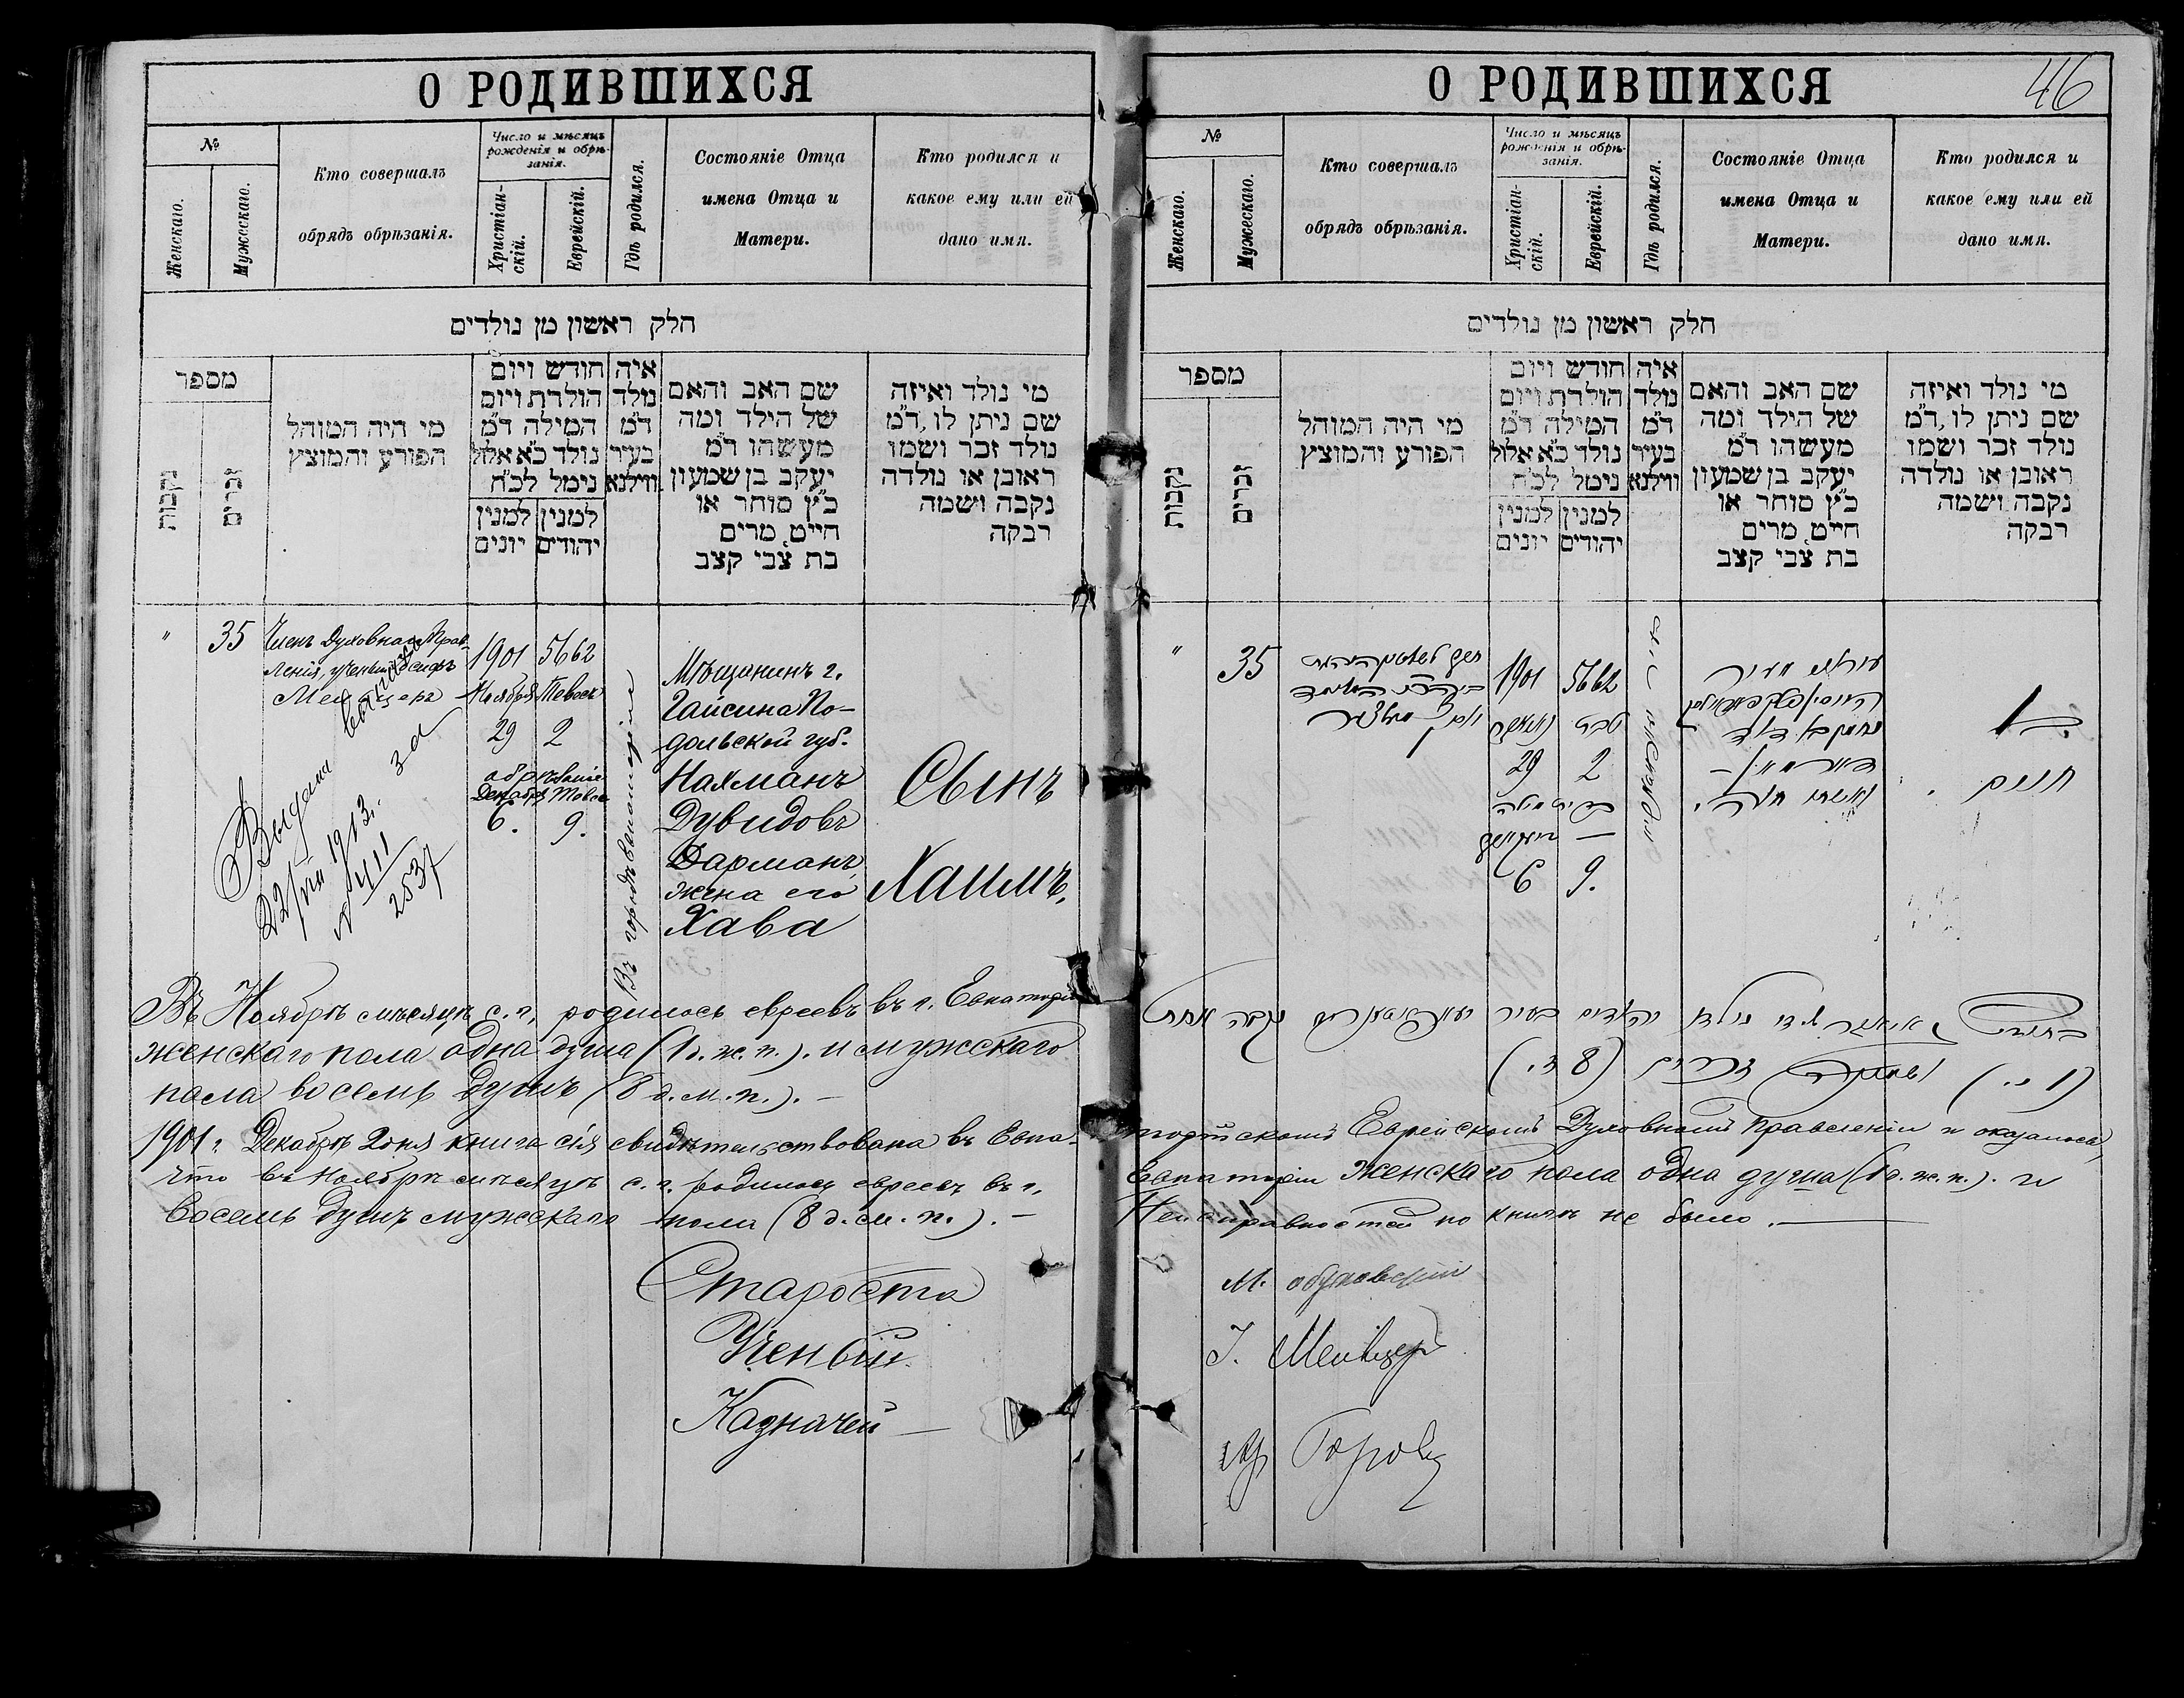 О РОДИВШИХСЯ
№
Женскаго.
Мужескаго.
Кто совершалъ
обрядъ обрѣзанія.
Число и мѣсяцъ
рожденія и обрѣ-
занія.
Христіан-
скій.
Еврейскій.
Гдѣ родился.
Состояніе Отца
имена Отца и
Матери.
Кто родился и
какое ему или ей
дано имя.
חלק ראשון מן נולדים
מספר
נקבות
זכרים
מי היה המוהל
הפורע והמוצץ
חודש ויום
הולדת ויום
המילה ד״מ
נולד כ״א אלול
נימל לכ״ח
למנין
יונים
למנין
יהודים
איה
נולד
ד״מ
בעיר
ווילנא
שם האב והאם
של הילד ומה
מעשהו ד״מ
יעקב בן שמעון
כ״ץ סוחר או
חייט, מרים
בת צבי קצב
מי נולד ואיזה
שם ניתן לו, ד״מ
נולד זכר ושמו
ראובן או נולדה
נקבה ושמה
רבקה
" 35
Членъ Духовнаго Прав-
ленія, ученый
Мейцеръ
1901
Ноября
29
5662
Тевеса
2
обрѣзаніе
Декабря
6.
Тевеса
9.
Въ городѣ Евпаторіи
Мѣщанинъ г.
Гайсина По-
дольской губ.
Нахманъ
Дувидовъ
Дарманъ,
жена его
Хава
Сынъ
Хаимъ.
Выдана
за
22/ 1913.
№ 411
2537
Въ Ноябрѣ мѣсяцѣ с. г. родилось евреевъ въ г. Евпаторіи
женскаго пола одна душа (1 д. ж. п.). и мужскаго
пола восемь душъ (8 д. м. п.). —
О РОДИВШИХСЯ
46
№
Женскаго.
Мужескаго.
Кто совершалъ
обрядъ обрѣзанія.
Число и мѣсяцъ
рожденія и обрѣ-
занія.
Христіан-
скій.
Еврейскій.
Гдѣ родился.
Состояніе Отца
имена Отца и
Матери.
Кто родился и
какое ему или ей
дано имя.
חלק ראשון מן נולדים
מספר
נקבות
זכרים
מי היה המוהל
הפורע והמוצץ
חודש ויום
הולדת ויום
המילה ד״מ
נולד כ״א אלול
נימל לכ״ח
למנין
יונים
למנין
יהודים
איה
נולד
ד״מ
בעיר
ווילנא
שם האב והאם
של הילד ומה
מעשהו ד״מ
יעקב בן שמעון
כ״ץ סוחר או
חייט, מרים
בת צבי קצב
מי נולד ואיזה
שם ניתן לו, ד״מ
נולד זכר ושמו
ראובן או נולדה
נקבה ושמה
רבקה
" 35
1901
29
5662
טבת
2
6
9.
נחמן בן דוד
דארמאן —
חיים
נולדו יהודים בעיר נקבה אחת
(1 נ.) זכרים (8 ז.)
1901 г. Декабрѣ 2 дня книга сія свидѣтельствована въ Евпа-
торійскомъ Еврейскомъ Духовномъ Правленіи и оказалось,
что въ ноябрѣ мѣсяцѣ с. г. родилось евреевъ въ г.
Евпаторіи женскаго пола одна душа (1 д. ж. п.). и
восемь душъ мужскаго пола (8 д. м. п.). —
Неисправностей по книгѣ не было. —
Староста
М.
Ученый
І. Мейцеръ
Казначей —